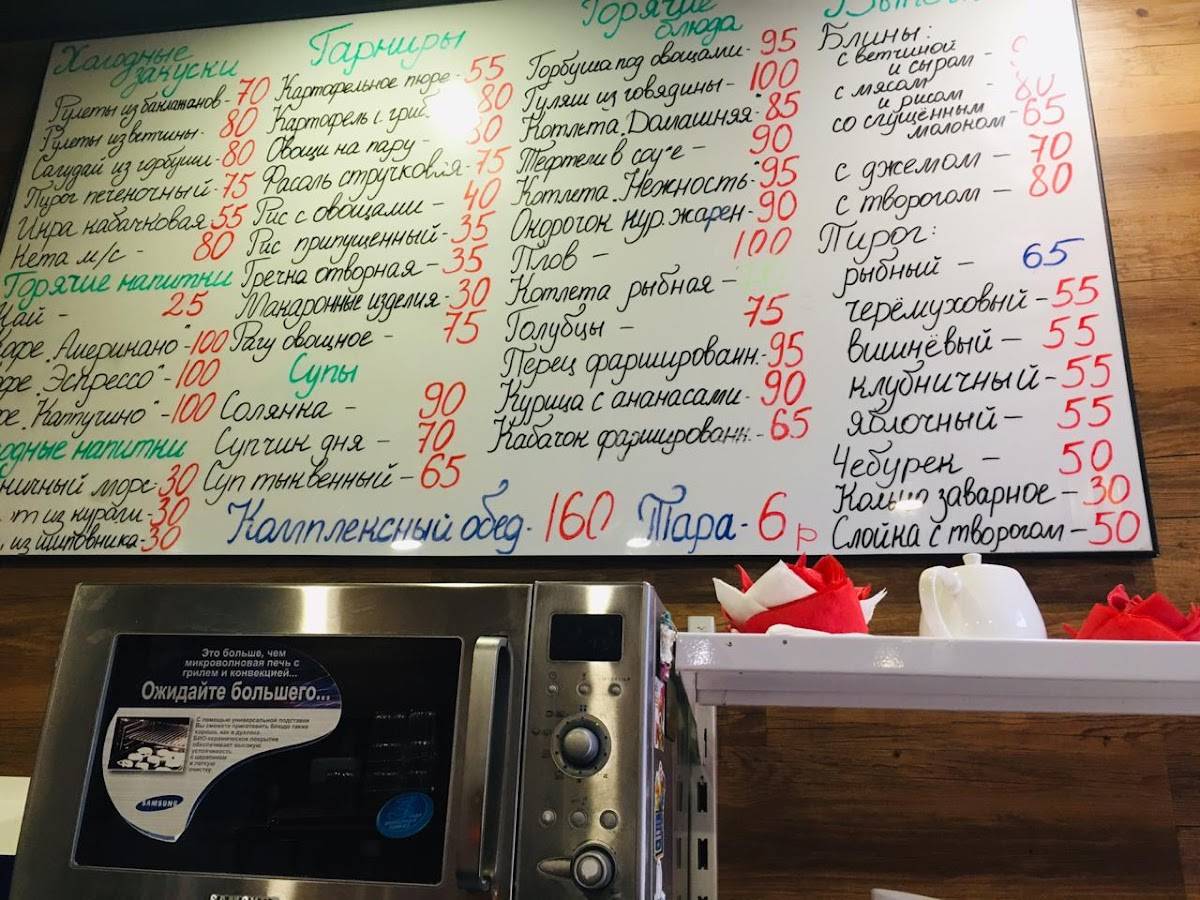 Холодные
закуски
Рулеты из баклажанов - 70
Рулеты из ветчины - 80
Салудай из горбуши - 80
Пирог печёночный - 75
Икра кабачковая 55
Кета м/с - 80
Горячие напитки
Чай - 25
Кофе "Американо" - 100
"Эспрессо" - 100
"Каппучино" - 100
напитки
морс - 30
из кураги - 30
из шиповника - 30
Гарниры
Картофельное пюре - 55
Картофель с 80
Овощи на пару -
Фасоль стручковая - 75
Рис с овощами - 40
Рис припущенный - 35
Гречка отворная - 35
Макаронные изделия - 30
Рагу овощное - 75
Супы
Солянка - 90
Супчик дня - 70
Суп тыквенный - 65
Горячие
блюда
Горбуша под овощами - 95
Гуляш из говядины - 100
Котлета "Домашняя" - 85
Тефтели в соусе - 90
Котлета "Нежность" - 95
Окорочок кур. жарен - 90
Плов - 100
Котлета рыбная -
Голубцы - 75
Перец фаршированн. - 95
Курица с ананасами - 90
Кабачок фаршированн. - 65
Блины:
с ветчиной
и сыром -
с мясом
и рисом - 80
со сгущённым
молоком - 65
с джемом - 70
с творогом - 80
Пирог:
рыбный - 65
черёмуховый - 55
вишнёвый - 55
клубничный - 55
яблочный - 55
Чебурек - 50
Кольцо заварное - 30
Слойка с творогом - 50
Комплексный обед - 160 Тара - 6 р
Это больше, чем
микроволновая печь с
грилем и конвекцией...
Ожидайте большего...
С помощью универсальной подставки
Вы сможете приготовить блюда также
хорошо, как в духовке.
БИО-керамическое покрытие
обеспечивает высокую
устойчивость
к царапинам
и легкую
очистку.
SAMSUNG